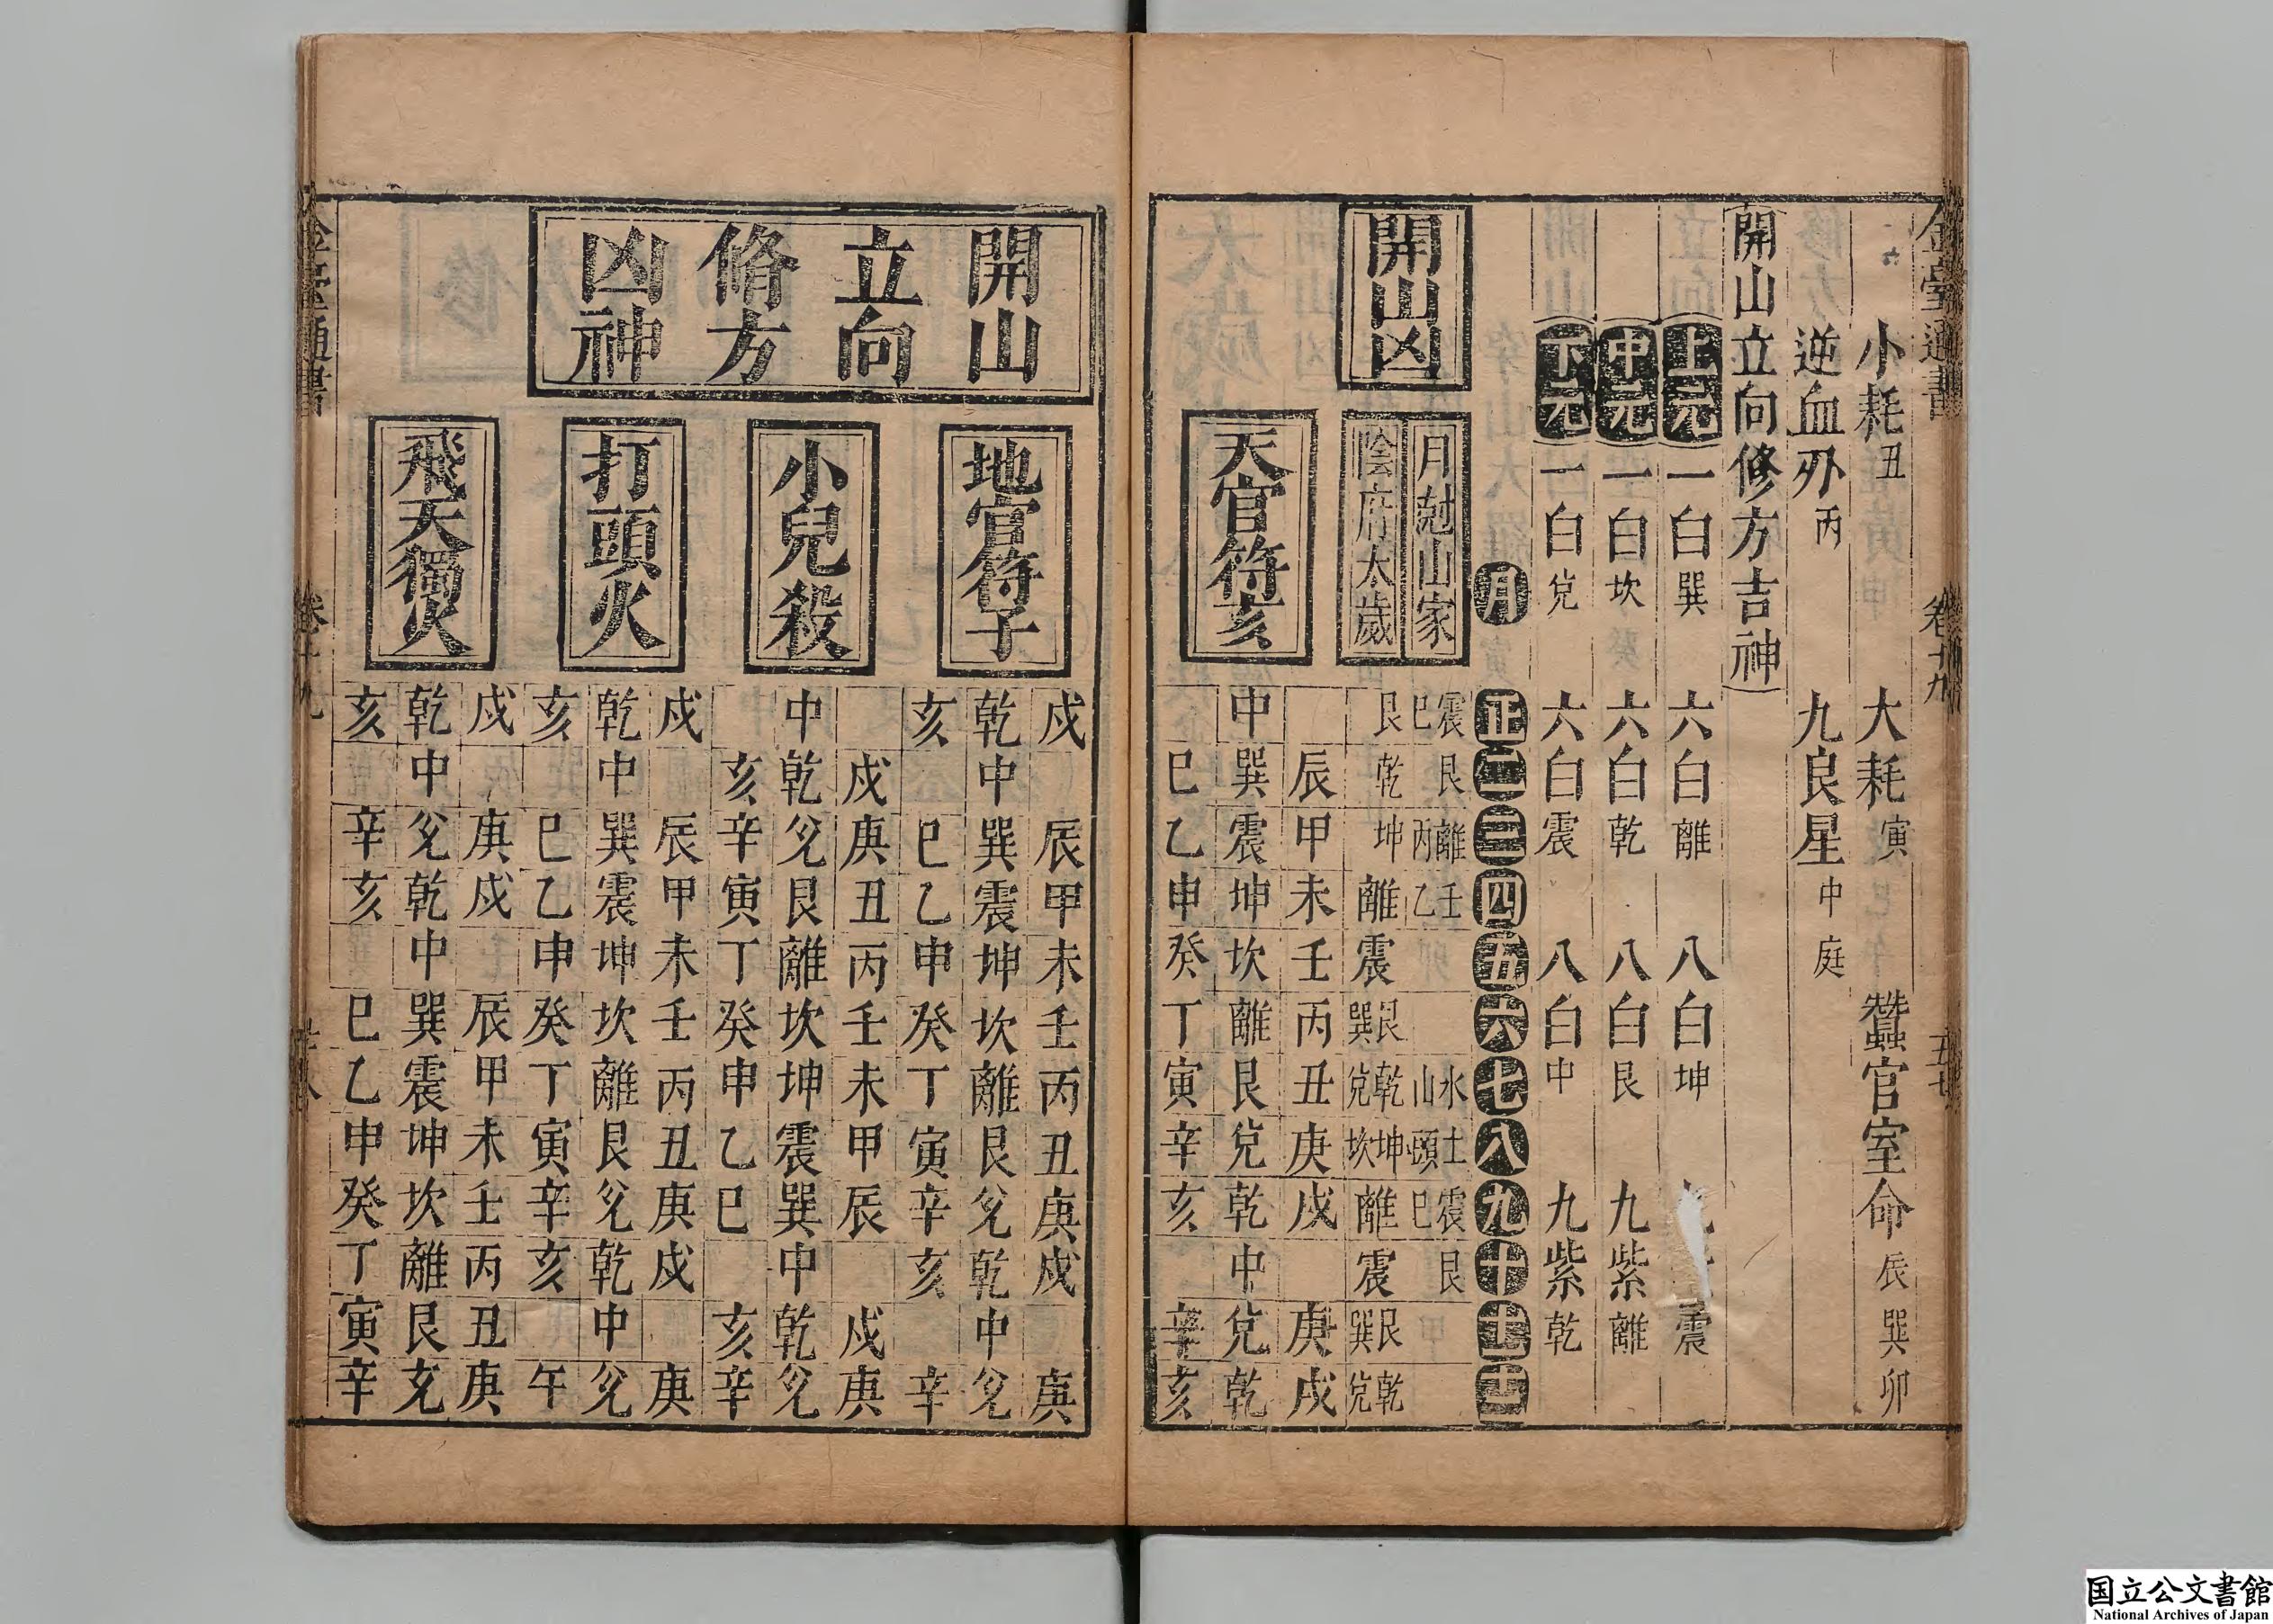 金臺通書 卷十九 五七
小耗丑 大耗寅 蠶官室命辰巽卯
逆血刃丙 九良星中庭
開山立向修方吉神
上元 一白巽 六白離 八白坤 震
中元 一白坎 六白乾 八白艮 九紫離
下元 一白兌 六白震 八白中 九紫乾
月 正 二 三 四 五 六 七 八 九 十 十一 十二
開山凶
月尅山家 震巳 艮 離丙 壬乙 水山 土頭 震巳 艮
陰府太歲 艮 乾 坤 離 震 艮巽 乾兌 坤坎 離 震 艮巽 乾兌
天官符亥
辰 甲 未 壬 丙 丑 庚 戌 庚 戌
中 巽 震 坤 坎 離 艮 兌 乾 中 兌 乾
巳 乙 申 癸 丁 寅 辛 亥 辛 亥
開山
立向
脩方
凶神
地官符子
戌 辰 甲 未 壬 丙 丑 庚 戌 庚
乾 中 巽 震 坤 坎 離 艮 兌 乾 中 兌
亥 巳 乙 申 癸 丁 寅 辛 亥 辛
小兒殺
戌 庚 丑 丙 壬 未 甲 辰 戌 庚
中 乾 兌 艮 離 坎 坤 震 巽 中 乾 兌
亥 辛 寅 丁 癸 申 乙 巳 亥 辛
打頭火
戌 辰 甲 未 壬 丙 丑 庚 戌 庚
乾 中 巽 震 坤 坎 離 艮 兌 乾 中 兌
亥 巳 乙 申 癸 丁 寅 辛 亥 午
飛天獨火
戌 庚 戌 辰 甲 未 壬 丙 丑 庚
乾 中 兌 乾 中 巽 震 坤 坎 離 艮 兌
亥 辛 亥 巳 乙 申 癸 丁 寅 辛
卷十九
国立公文書館
National Archives of Japan